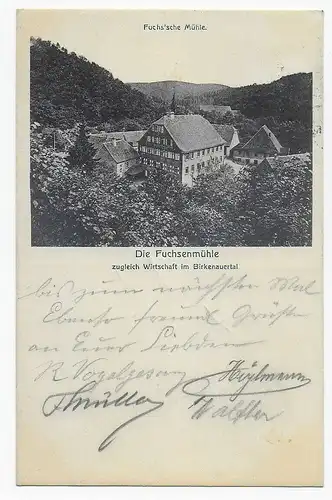 Fuchs'sche Mühle.
Die Fuchsenmühle
zugleich Wirtschaft im Birkenauertal
bis zum nächsten Mal
Ebenso freundl Grüße
an Eure Liebden
R Vogelgesang